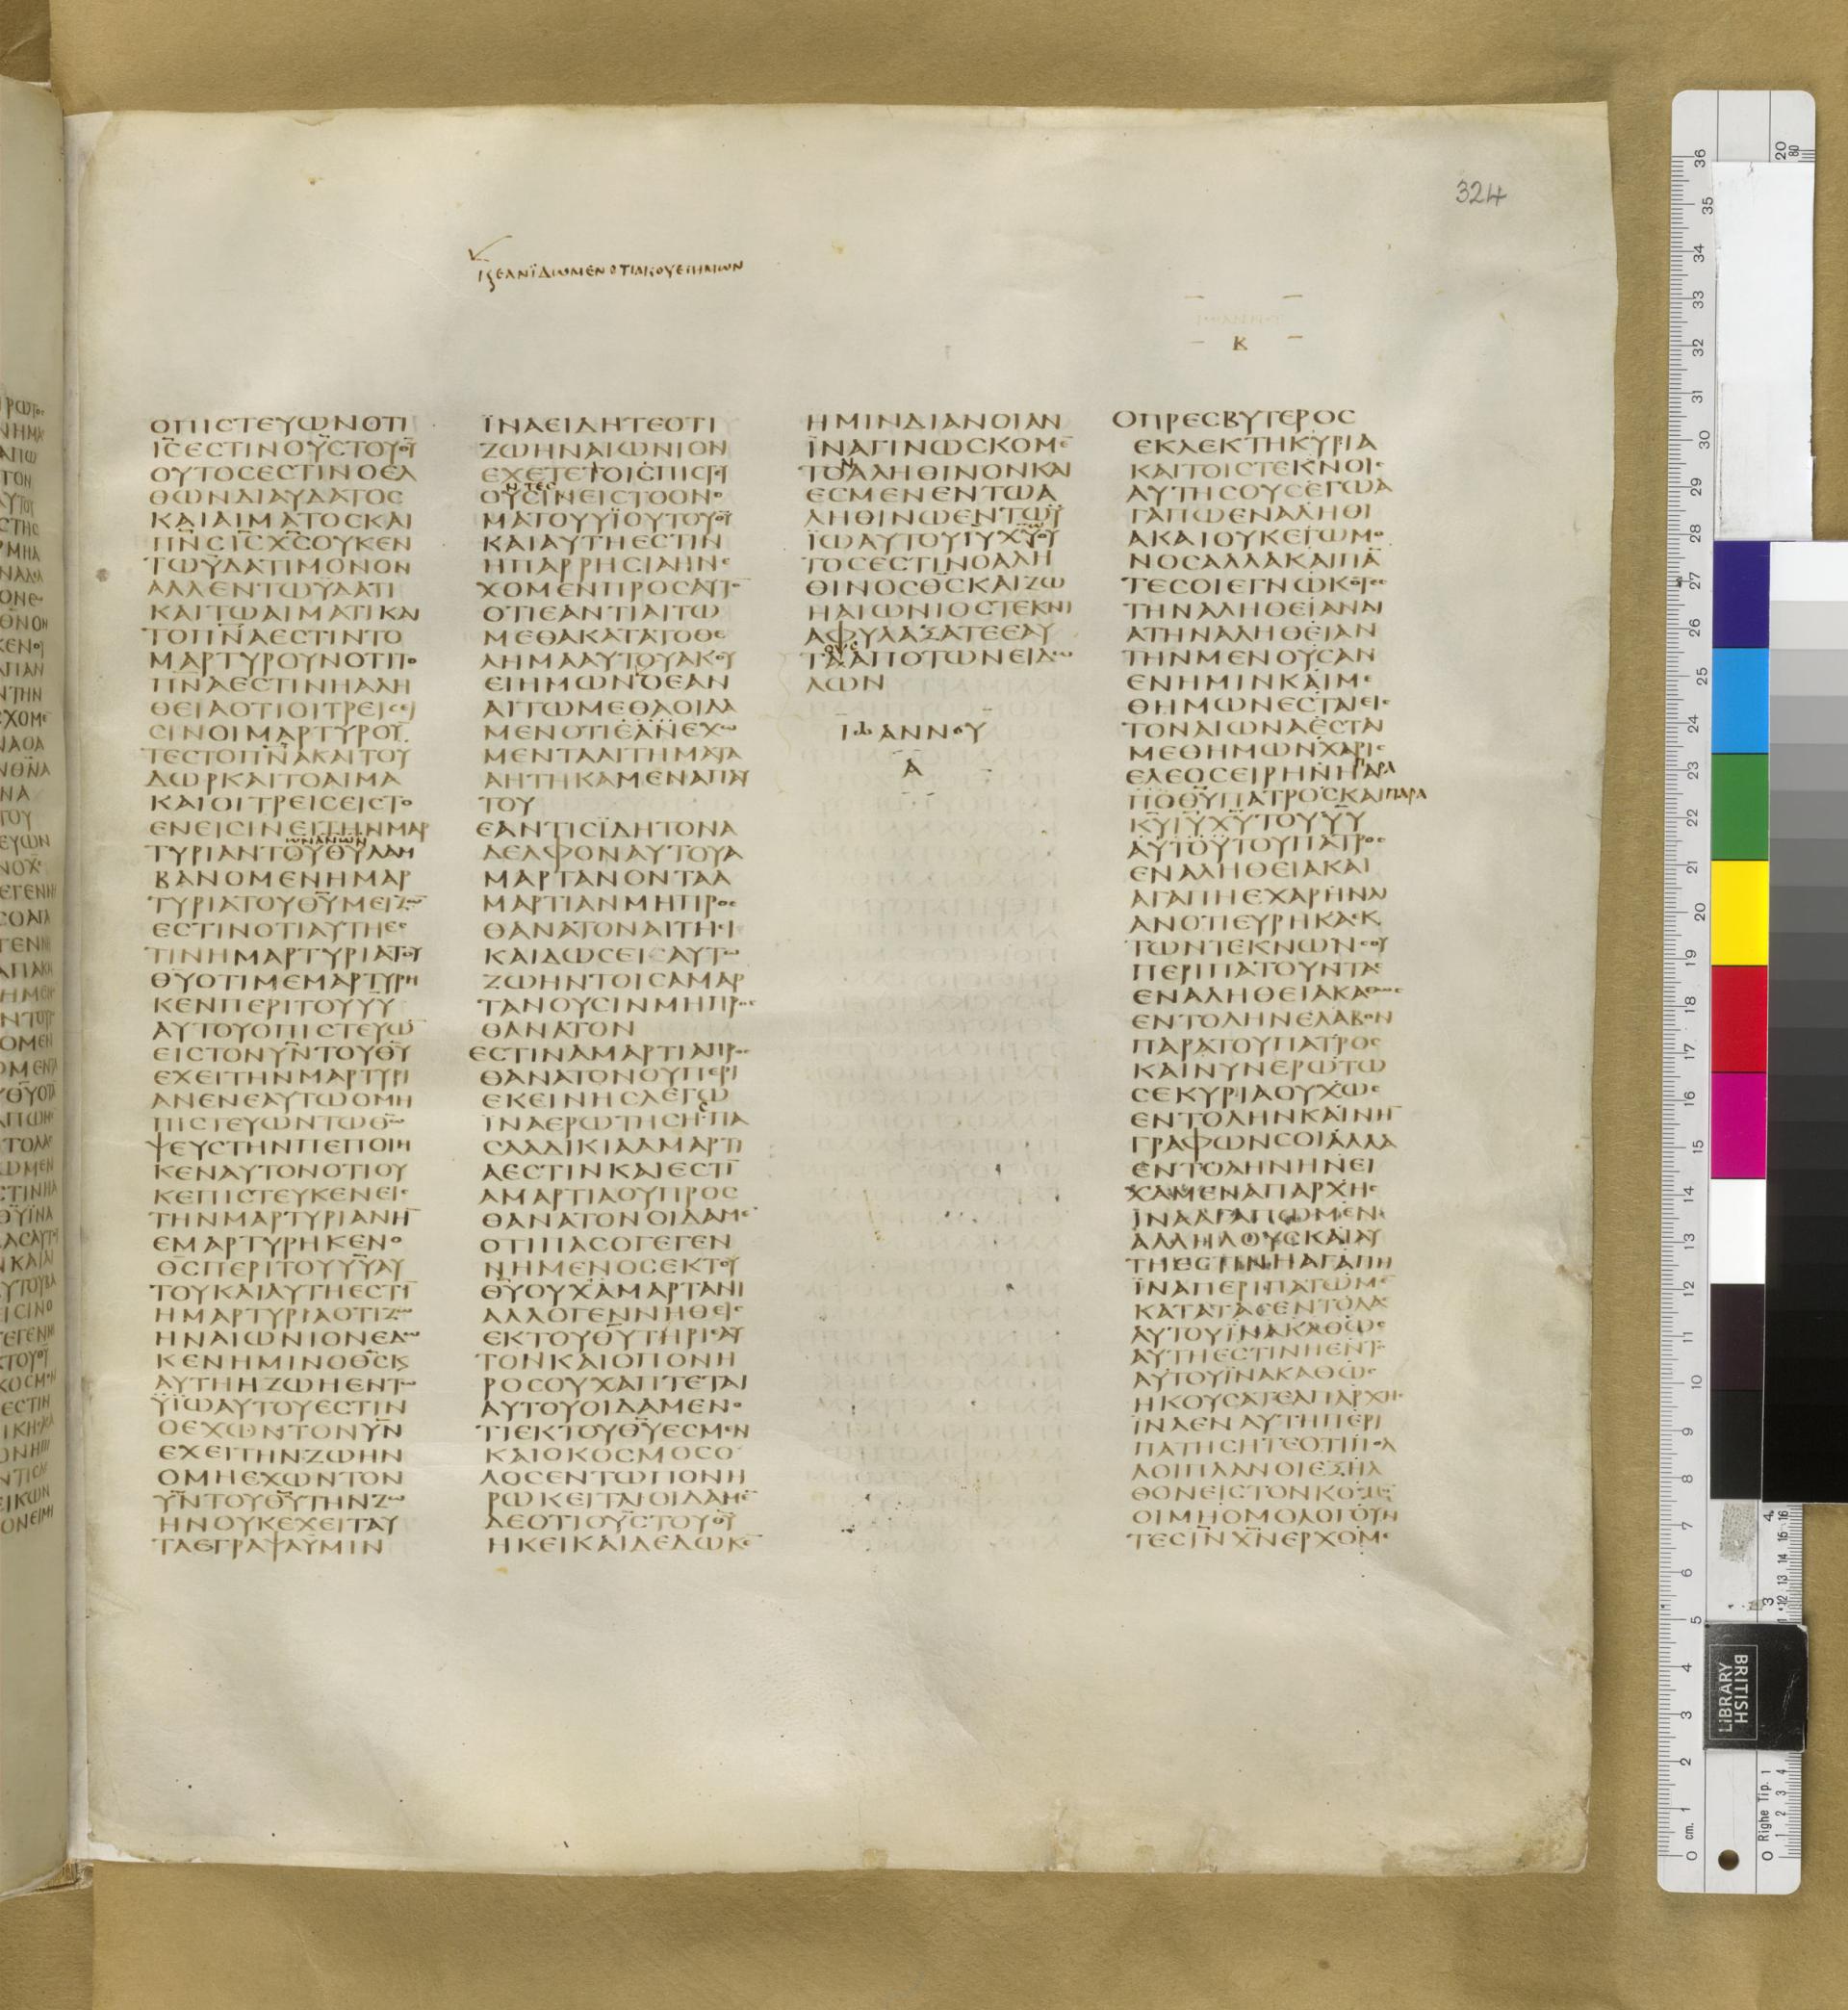 324
κ̣ εανϊδωμενοτιακουειημων
Β
ΟΠΙCΤΕΥΩΝΟΤΙ
ΙC̅ΕCΤΙΝΟΥC̅ΤΟΥΘΥ̅
ΟΥΤΟCΕCΤΙΝΟΕΛ
ΘΩΝΔΙΑΥΔΑΤΟC
ΚΑΙΑΙΜΑΤΟCΚΑΙ
ΠΝ̅CΙC̅ΧC̅ΟΥΚΕΝ
ΤΩΥΔΑΤΙΜΟΝΟΝ
ΑΛΛΕΝΤΩΥΔΑΤΙ
ΚΑΙΤΩΑΙΜΑΤΙΚΑΙ
ΤΟΠΝ̅ΑΕCΤΙΝΤΟ
ΜΑΡΤΥΡΟΥΝΟΤΙΤΟ
ΠΝ̅ΑΕCΤΙΝΗΑΛΗ
ΘΕΙΑΟΤΙΟΙΤΡΕΙCΕΙ
CΙΝΟΙΜΑΡΤΥΡΟΥ̅
ΤΕCΤΟΠΝ̅ΑΚΑΙΤΟΥ
ΔΩΡΚΑΙΤΟΑΙΜΑ
ΚΑΙΟΙΤΡΕΙCΕΙCΤΟ
ΕΝΕΙCΙΝΕΙΤΗΝΜΑΡ
ΤΥΡΙΑΝΤΟΥΘΥ̅ΛΑΜ
ΒΑΝΟΜΕΝΗΜΑΡ
ΤΥΡΙΑΤΟΥΘΥ̅ΜΕΙΖΩ̅
ΕCΤΙΝΟΤΙΑΥΤΗΕC
ΤΙΝΗΜΑΡΤΥΡΙΑΤΟΥ
ΘΥ̅ΟΤΙΜΕΜΑΡΤΥΡΗ
ΚΕΝΠΕΡΙΤΟΥΥΥ̅
ΑΥΤΟΥΟΠΙCΤΕΥΩ̅
ΕΙCΤΟΝΥΝ̅ΤΟΥΘΥ̅
ΕΧΕΙΤΗΝΜΑΡΤΥΡΙ
ΑΝΕΝΕΑΥΤΩΟΜΗ
ΠΙCΤΕΥΩΝΤΩΘΩ̅
ΨΕΥCΤΗΝΠΕΠΟΙΗ
ΚΕΝΑΥΤΟΝΟΤΙΟΥ
ΚΕΠΙCΤΕΥΚΕΝΕΙC
ΤΗΝΜΑΡΤΥΡΙΑΝΗ̅
ΕΜΑΡΤΥΡΗΚΕΝΟ
ΘC̅ΠΕΡΙΤΟΥΥΥ̅ΑΥ
ΤΟΥΚΑΙΑΥΤΗΕCΤΙ̅
ΗΜΑΡΤΥΡΙΑΟΤΙΖΩ
ΗΝΑΙΩΝΙΟΝΕΔΩ
ΚΕΝΗΜΙΝΟΘC̅Κ
ΑΥΤΗΗΖΩΗΕΝΤΩ
ΥΪΩΑΥΤΟΥΕCΤΙΝ
ΟΕΧΩΝΤΟΝΥΝ̅
ΕΧΕΙΤΗΝΖΩΗΝ
ΟΜΗΕΧΩΝΤΟΝ
ΥΝ̅ΤΟΥΘΥ̅ΤΗΝΖΩ
ΗΝΟΥΚΕΧΕΙΤΑΥ
ΤΑΕΓΡΑΨΑΥΜΙΝ
ΪΝΑΕΙΔΗΤΕΟΤΙ
ΖΩΗΝΑΙΩΝΙΟΝ
ΕΧΕΤΕΤΟΙCΠΙCΤΕΥ
ΟΥCΙΝΕΙCΤΟΟΝΟ
ΜΑΤΟΥΥΪΟΥΤΟΥΘΥ̅
ΚΑΙΑΥΤΗΕCΤΙΝ
ΗΠΑΡΡΗCΙΑΗΝΕ
ΧΟΜΕΝΠΡΟCΑΥΤΟ̅
ΟΤΙΕΑΝΤΙΑΙΤΩ
ΜΕΘΑΚΑΤΑΤΟΘΕ
ΛΗΜΑΑΥΤΟΥΑΚΟΥ
ΕΙΗΜΩΝΟΕΑΝ
ΑΙΤΩΜΕΘΑΟΙΔΑ
ΜΕΝΟΤΙΕΑΝΕΧΩ
ΜΕΝΤΑΑΙΤΗΜΑΤΑ
ΑΗΤΗΚΑΜΕΝΑΠΑΥ
ΤΟΥ
ΕΑΝΤΙCΪΔΗΤΟΝΑ
ΔΕΛΦΟΝΑΥΤΟΥΑ
ΜΑΡΤΑΝΟΝΤΑΑ
ΜΑΡΤΙΑΝΜΗΠΡΟC
ΘΑΝΑΤΟΝΑΙΤΗCΙ
ΚΑΙΔΩCΕΙCΑΥΤΩ
ΖΩΗΝΤΟΙCΑΜΑΡ
ΤΑΝΟΥCΙΝΜΗΠΡΟC
ΘΑΝΑΤΟΝ
ΕCΤΙΝΑΜΑΡΤΙΑΠΡΟC
ΘΑΝΑΤΟΝΟΥΠΕΡΙ
ΕΚΕΙΝΗCΛΕΓΩ
ΪΝΑΕΡΩΤΗCΗΠΑ
CΑΑΔΙΚΙΑΑΜΑΡΤΙ
ΑΕCΤΙΝΚΑΙΕCΤΙ̅
ΑΜΑΡΤΙΑΟΥΠΡΟC
ΘΑΝΑΤΟΝΟΙΔΑΜΕ̅
ΟΤΙΠΑCΟΓΕΓΕΝ
ΝΗΜΕΝΟCΕΚΤΟΥ
ΘΥ̅ΟΥΧΑΜΑΡΤΑΝΙ
ΑΛΛΟΓΕΝΝΗΘΕΙC
ΕΚΤΟΥΘΥ̅ΤΗΡΙΑΥ
ΤΟΝΚΑΙΟΠΟΝΗ
ΡΟCΟΥΧΑΠΤΕΤΑΙ
ΑΥΤΟΥΟΙΔΑΜΕΝΟ
ΤΙΕΚΤΟΥΘΥ̅ΕCΜΕΝ
ΚΑΙΟΚΟCΜΟCΟ
ΛΟCΕΝΤΩΠΟΝΗ
ΡΩΚΕΙΤΑΙΟΙΔΑΜΕ̅
ΔΕΟΤΙΟΥC̅ΤΟΥΘΥ̅
ΗΚΕΙΚΑΙΔΕΔΩΚΕ̅
ΗΜΙΝΔΙΑΝΟΙΑΝ
ΪΝΑΓΙΝΩCΚΟΜΕ̅
ΤΟΑΛΗΘΙΝΟΝΚΑΙ
ΕCΜΕΝΕΝΤΩΑ
ΛΗΘΙΝΩΕΝΤΩΥ
ΪΩΑΥΤΟΥΙΥ̅ΧΥ̅ΟΥ
ΤΟCΕCΤΙΝΟΑΛΗ
ΘΙΝΟCΘC̅ΚΑΙΖΩ
ΗΑΙΩΝΙΟCΤΕΚΝΙ
ΑΦΥΛΑΞΑΤΕΕΑΥ
ΤΑΑΠΟΤΩΝΕΙΔΩ
ΛΩΝ
ΪΩΑΝΝΟΥ
Α
ΟΠΡΕCΒΥΤΕΡΟC
ΕΚΛΕΚΤΗΚΥΡΙΑ
ΚΑΙΤΟΙCΤΕΚΝΟΙC
ΑΥΤΗCΟΥCΕΓΩΑ
ΓΑΠΩΕΝΑΛΗΘΙ
ΑΚΑΙΟΥΚΕΓΩΜΟ
ΝΟCΑΛΛΑΚΑΙΠΑ̅
ΤΕCΟΙΕΓΝΩΚΟΤΕC
ΤΗΝΑΛΗΘΕΙΑΝΔΙ
ΑΤΗΝΑΛΗΘΕΙΑΝ
ΤΗΝΜΕΝΟΥCΑΝ
ΕΝΗΜΙΝΚΑΙΜΕ
ΘΗΜΩΝΕCΤΑΙΕΙC
ΤΟΝΑΙΩΝΑΕCΤΑ
ΜΕΘΗΜΩΝΧΑΡΙC
ΕΛΕΟCΕΙΡΗΝΗΑΠΟ παρα
ΘΥ̅ΠΑΤΡΟCΚΑΙ παρα
ΚΥ̅ΙΥ̅ΧΥ̅ΤΟΥΥΥ̅
ΑΥΤΟΥΤΟΥΠΑΤΡΟC
ΕΝΑΛΗΘΕΙΑΚΑΙ
ΑΓΑΠΗΕΧΑΡΗΝΛΙ
ΑΝΟΤΙΕΥΡΗΚΑΕΚ
ΤΩΝΤΕΚΝΩΝCΟΥ
ΠΕΡΙΠΑΤΟΥΝΤΑC
ΕΝΑΛΗΘΕΙΑΚΑΘΩC
ΕΝΤΟΛΗΝΕΛΑΒΟΝ
ΠΑΡΑΤΟΥΠΑΤΡΟC
ΚΑΙΝΥΝΕΡΩΤΩ
CΕΚΥΡΙΑΟΥΧΩC
ΕΝΤΟΛΗΝΚΑΙΝΗ̅
ΓΡΑΦΩΝCΟΙΑΛΛΑ
ΕΝΤΟΛΗΝΗΝΕΙ
ΧΑΜΕΝΑΠΑΡΧΗC
ΪΝΑΑΓΑΠΩΜΕΝ
ΑΛΛΗΛΟΥCΚΑΙΑΥ
ΤΗΕCΤΙΝΗΑΓΑΠΗ
ΪΝΑΠΕΡΙΠΑΤΩΜΕ̅
ΚΑΤΑΤΑCΕΝΤΟΛΑC
ΑΥΤΟΥΪΝΑΚΑΘΩC
ΑΥΤΗΕCΤΙΝΗΕΝΤΟ
ΑΥΤΟΥΪΝΑΚΑΘΩC
ΗΚΟΥCΑΤΕΑΠΑΡΧΗC
ΪΝΑΕΝΑΥΤΗΠΕΡΙ
ΠΑΤΗCΗΤΕΟΤΙΠΟΛ
ΛΟΙΠΛΑΝΟΙΕΞΗΛ
ΘΟΝΕΙCΤΟΝΚΟCΜΟ̅
ΟΙΜΗΟΜΟΛΟΓΟΥΝ
ΤΕCΙΝ̅ΧΝ̅ΕΡΧΟΜΕ
BRITISH
LIBRARY